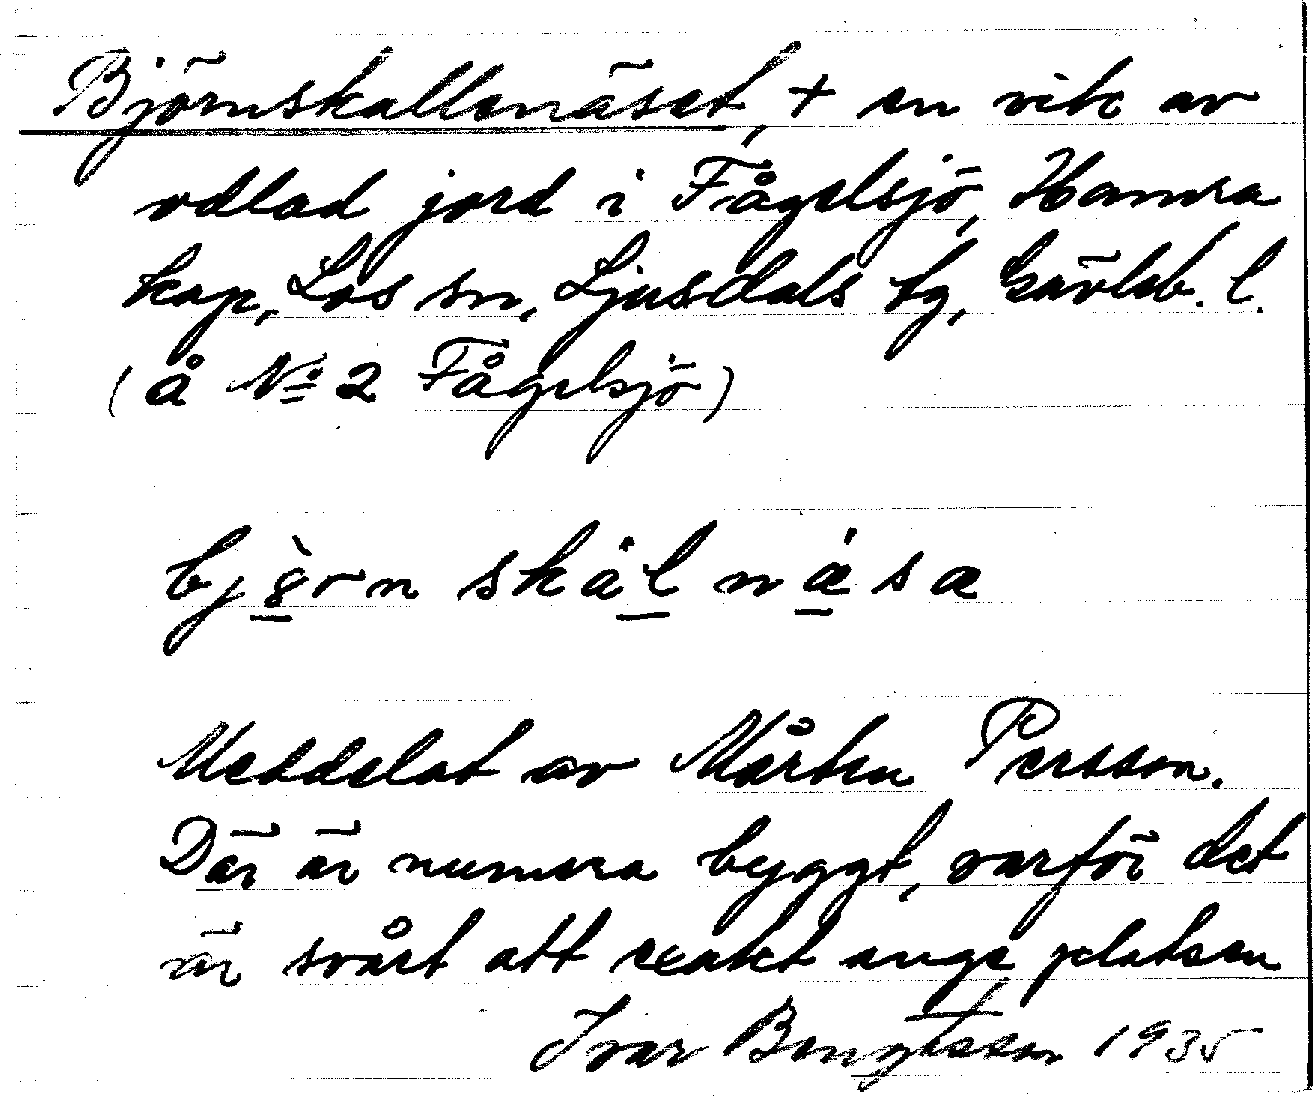 Björnskallenäset, + en vik av
odlad jord i Fågelsjö, Hamra
kap, Los sn, Ljusdals tg, Gävleb. l.
(å No 2 Fågelsjö)
bjö̀rn skål nä́sä
Meddelat av Mårten Persson.
Där är numera byggt, varför det
är svårt att exakt ange platsen
Ivar Bengtsson 1935